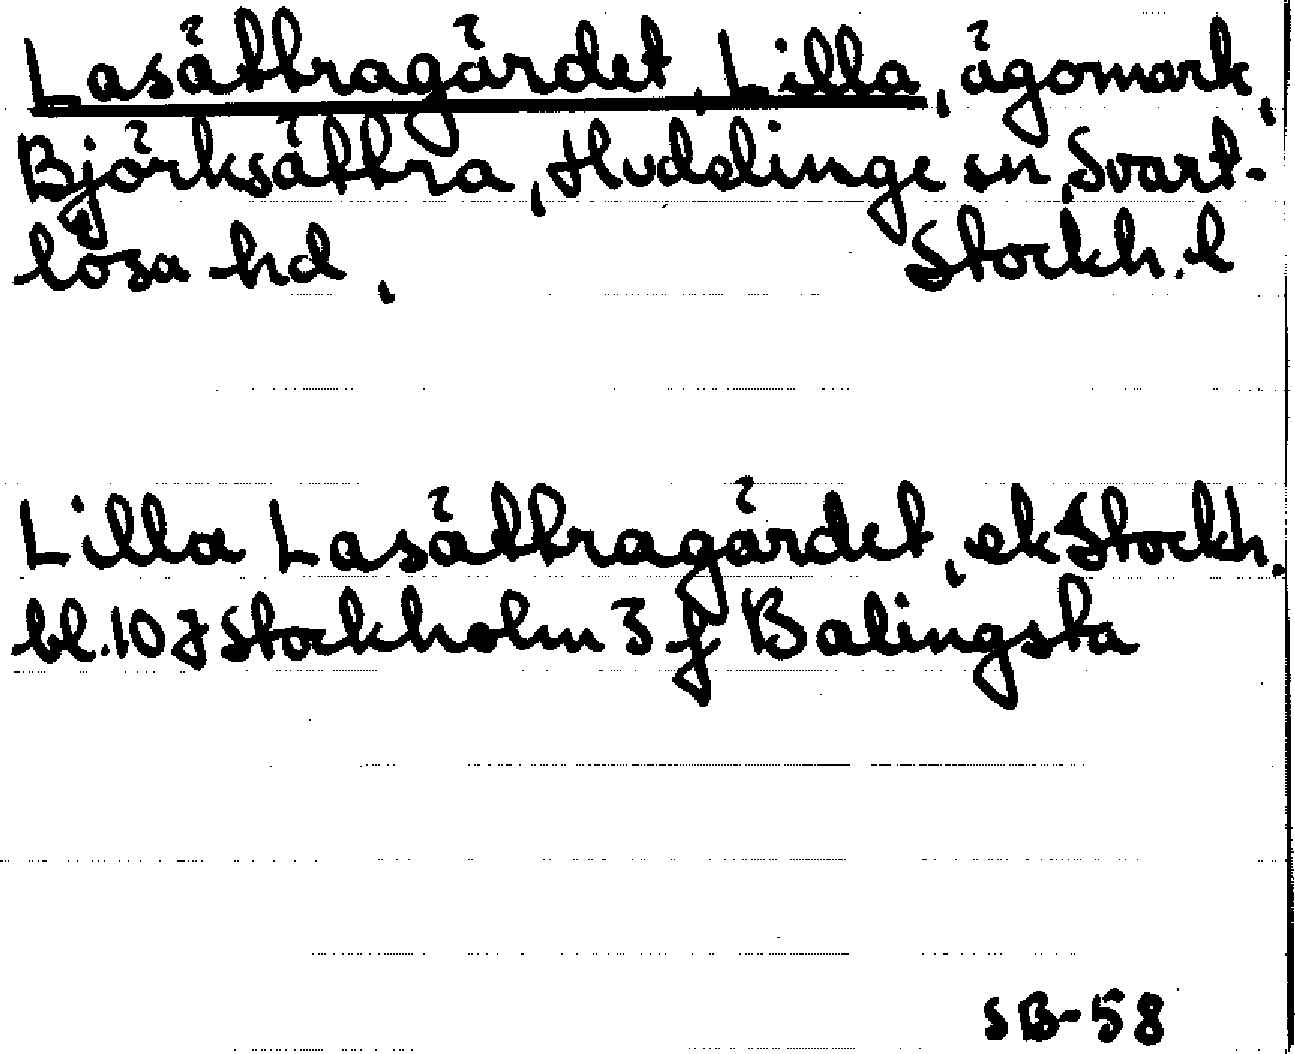 Lasättragärdet, Lilla, ägomark,
Björksättra, Huddinge sn, Svart-
lösa hd, Stockh. l
Lilla Lasättragärdet, ek Stockh.
bl. 10 J Stockholm 3 f Balingsta
SB-58